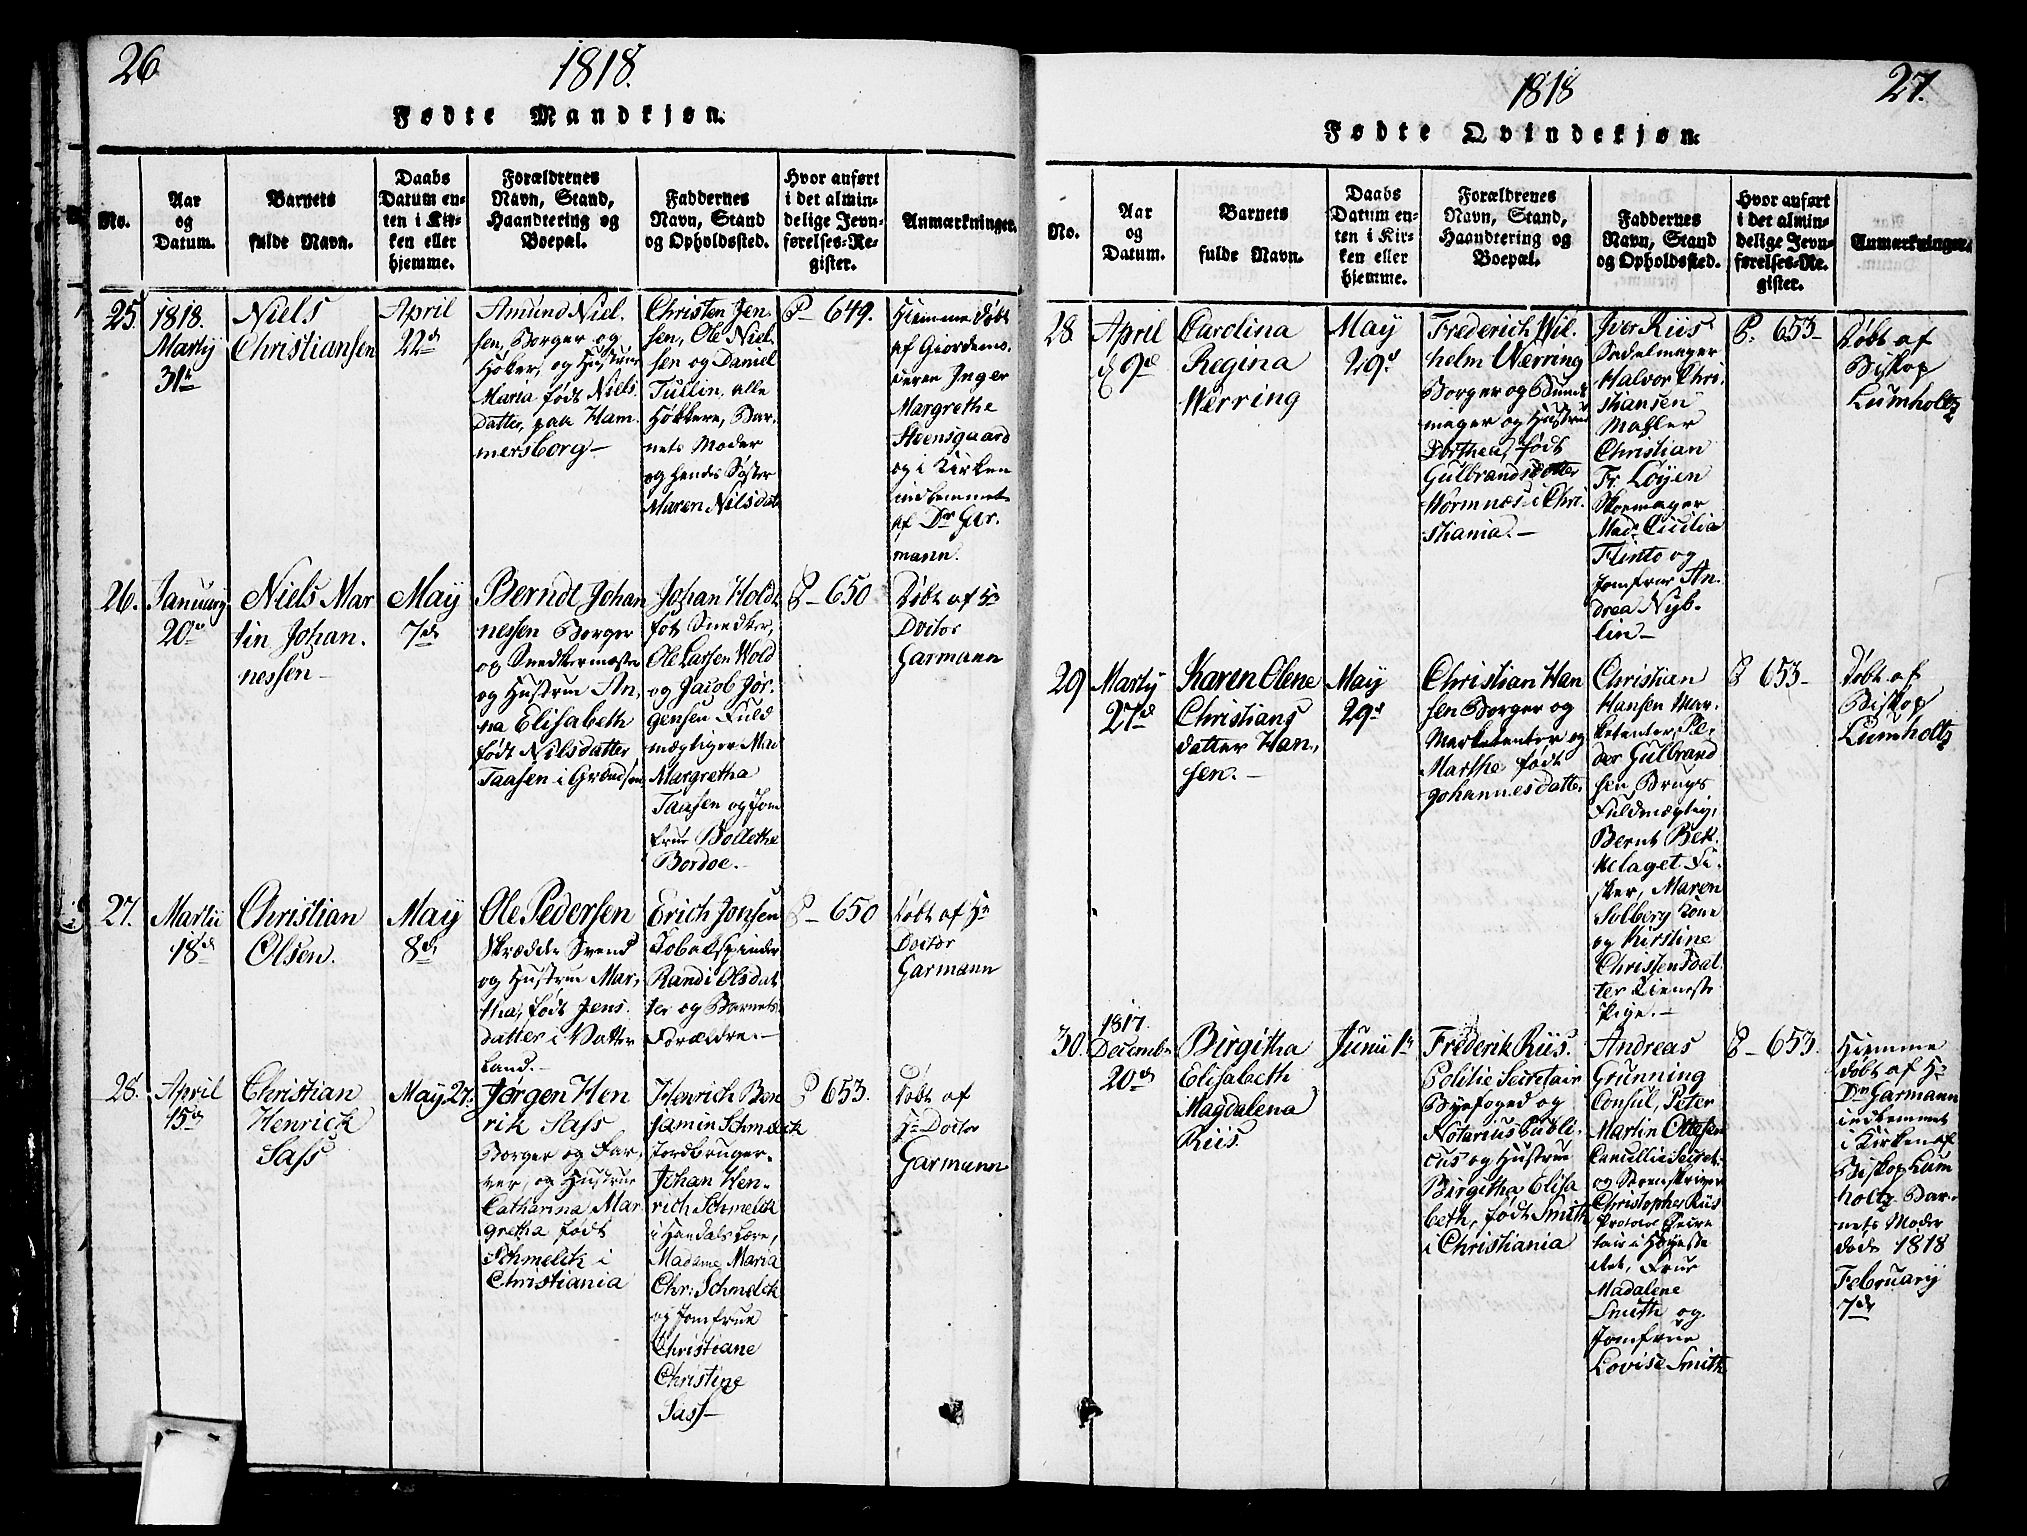 26
1818.
Fødte Mandkjøn.
No.
Aar
og
Datum.
Barnets
fulde Navn.
Daabs
Datum en-
ten i Kir-
ken eller
hjemme.
Forældrenes
Navn, Stand,
Haandtering og
Boepæl.
Faddernes
Navn, Stand
og Opholdssted.
Hvor anført
i det almin-
delige Jevn-
førelses-Re-
gister.
Anmærkninger.
25.
1818.
Martij
31te
Niels
Christiansen
April
22de
Amund Niel-
sen, Borger og
Høker, og Hustrue
Maria født Niels
datter, paa Ham-
mersborg-
Christen Jen-
sen, Ole Niel-
sen og Daniel
Tullin, alle
Høkkere, Bar-
nets Moder
og hendes Søster
Maren Nilsdat
P- 649.
Hiemme døbt
af Giordemo-
deren Inger
Margrethe
Steensgaard
og i Kirken
indkommet
af Dr Gar-
mann.
26.
January
20de
Niels Mar
tin Johan-
nessen-
May
7de
Berndt Johan
nessen Borger
og Snedkermester
og Hustrue An-
na Elisabeth
født Nilsdatter
Taasen i Grændsen
Johan Holdt
fot Snedker,
Ole Larsen Wold
og Jacob Jør-
gensen Fuld
mægtiger Mad
Margretha
Taasen og Jom
frue Bolletha
Bordoe.-
P- 650
Døbt af Hr
Doctor
Garmann
27.
Martii
18de
Christian
Olsen.
May
8de
Ole Pedersen
Skrædder Svend
og Hustrue Mar-
tha, født Jens
datter i Vatter
land.-
Erich Jonsen
Tobakspinder
Randi Olsdat
ter og Barnets
Forældre.-
P- 650
Døbt af Hr
Doctor
Garmann
28.
April
15de
Christian
Henrick
Sass
May 27.
Jørgen Hen
rik Sass
Borger og Far-
ver, og Hustrue
Catharina Mar
gretha født
Schmelck i
Christiania
Henrich Ben
jamin Schmelck
Jordbruger-
Johan Hen-
rich Schmelck
i Handels Lære,
Madame Maria
Chr: Schmelck
og Jomfrue
Christiane
Christine
Sass-
P 653.
Døbt af
Hr Doctor
Garmann
1818
27.
Fødte Qvindekjøn.
No.
Aar
og
Datum.
Barnets
fulde Navn.
Daabs
Datum en-
ten i Kir-
ken eller
hjemme.
Forældrenes
Navn, Stand,
Haandtering og
Boepæl.
Faddernes
Navn, Stand
og Opholdssted.
Hvor anført
i det almin-
delige Jevn-
førelses-Re-
gister.
Anmærkninger.
28.
April
d 9de
Carolina
Regina
Werring
May
29de
Frederich Wil-
helm Werring
Borger og Bundt
mager og Hustrue
Dorthea, født
Gulbrandsdatter
Wormnæs i Chri-
stiania.-
Iver Riis
Sadelmager
Halvor Chri-
stiansen
Mahler
Christian
Fr. Loyen
Skomager
Mad. Cicilia
Flinto og
Jomfrue An-
drea Nyb-
lin-
P. 653-
Døbt af
Biskop
Lumholtz
29
Martij
27de
Karen Olene
Christians
datter Han-
sen.-
May
29de
Christian Han
sen Borger og
Marketenter og
Marthe født
Johannesdatter
Christian
Hansen Mar-
ketenter, Pe-
der Gulbrand
sen Brugs
Fuldmægtig,
Bernt Bek-
kelaget Fi-
sker, Maren
Solberg Kone
og Kirstine
Christensdat-
ter Tieneste
Pige.-
P 653-
Døbt af
Biskop
Lumholtz
30.
1817.
Decembr
20de
Birgitha
Elisabeth
Magdalena
Riis.
Junii 1te
Frederik Riis.
Politie Secretair
Byefoged og
Notarius Publi-
cus og Hustrue
Birgitha Elisa
beth, født Smith
i Christiania
Andreas
Grunning
Consul, Peter
Martin Ottesen
Cancellie Secret.
og Sorenskriver
Christopher Riis
Protocol Secre
tair i Høyeste
Ret, Frue
Madalene
Smith og
Jomfrue
Lovise Smith
P- 653.
Hiemme
døbt af Hr
Dr Garmann
indkommet
i Kirken af
Biskop Lum
holtz. Bar-
nets Moder
døde 1818
Februarij
7de